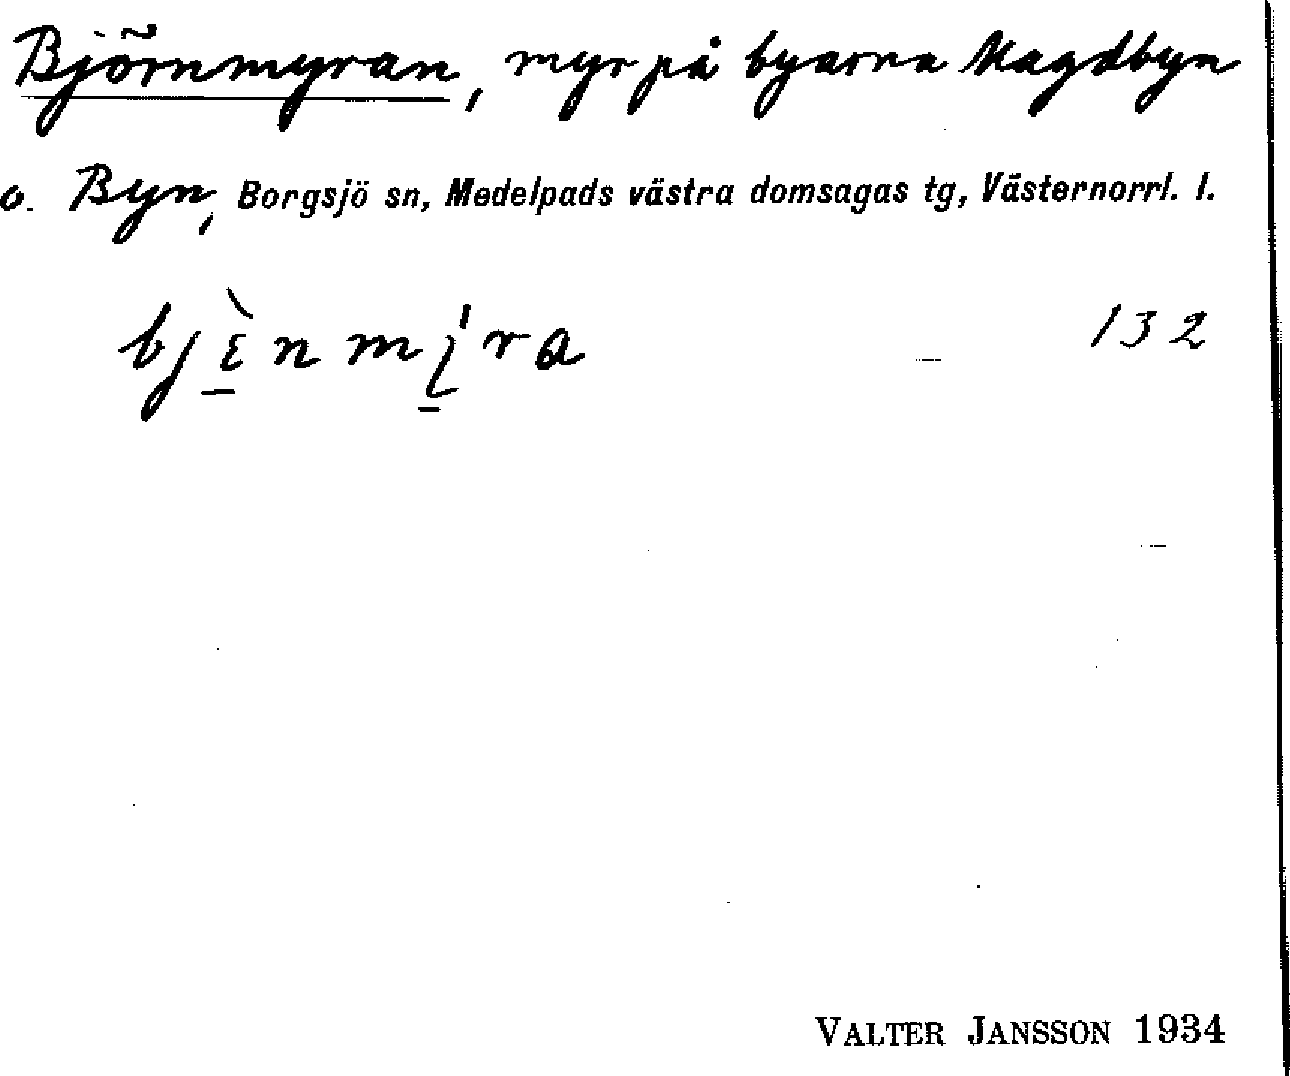 Björnmyran, myr på byarna Magdbyn
o. Byn, Borgsjö sn, Medelpads västra domsagas tg, Västernorrl. l.
132
VALTER JANSSON 1934